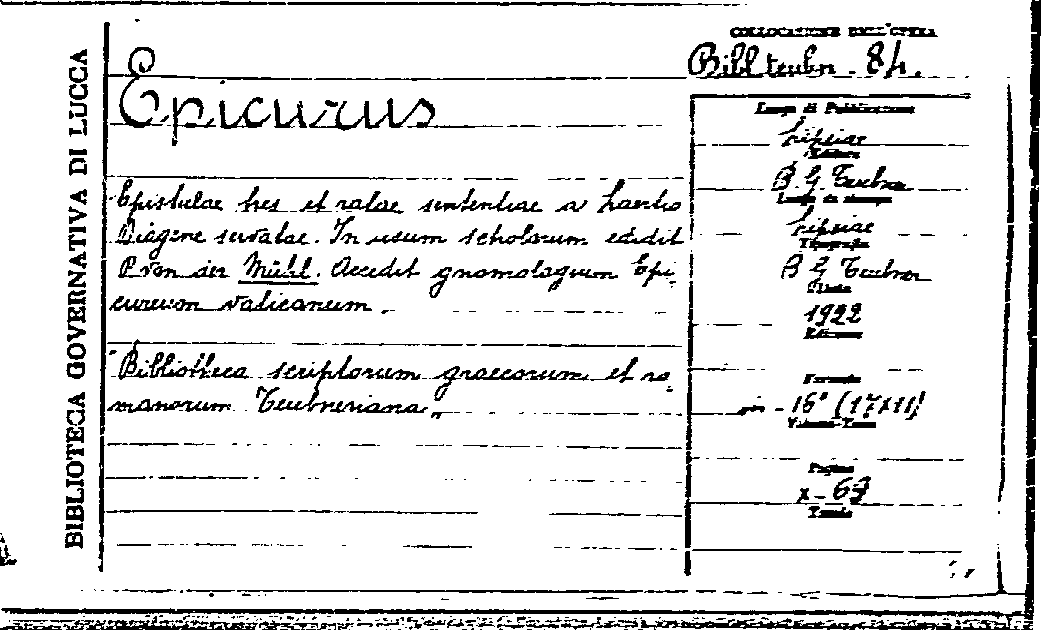 BIBLIOTECA GOVERNATIVA DI LUCCA
COLLOCAZIONE DELL'OPERA
Bibl teubn. 84.
Epicurus
Epistulae tres et ratae sententiae a Laertio
Diogene servatae. In usum scholarum edidit
P. von der Mühl. Accedit gnomologium Epi-
cureum vaticanum.
"Bibliotheca scriptorum graecorum et ro-
manorum Teubneriana"
Luogo di Pubblicazione
Lipsiae
Editore
B G Teubner
Luogo di stampa
Lipsiae
Tipografia
B G Teubner
Data
1922
Edizione
Formato
in - 16° (17x11)
Volume-Tomo
Pagine
x - 69
Tavole